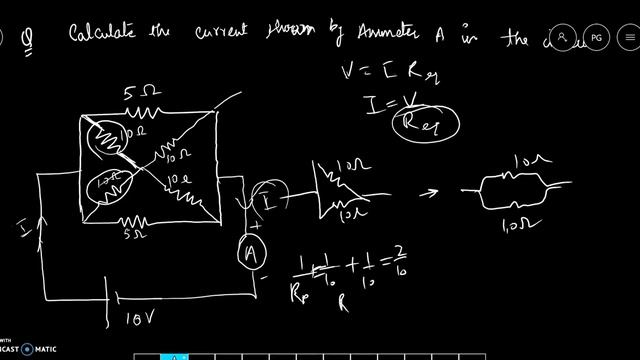 Q Calculate the current shown by Ammeter A in the
PG
V = I Req
I = V
Req
5Ω
10Ω
10Ω
10Ω
10Ω
5Ω
I
I
+
A
-
10V
10Ω
10Ω
→
10Ω
10Ω
1/Rp = 1/10 + 1/10 = 2/10
R
WITH
CAST-O-MATIC